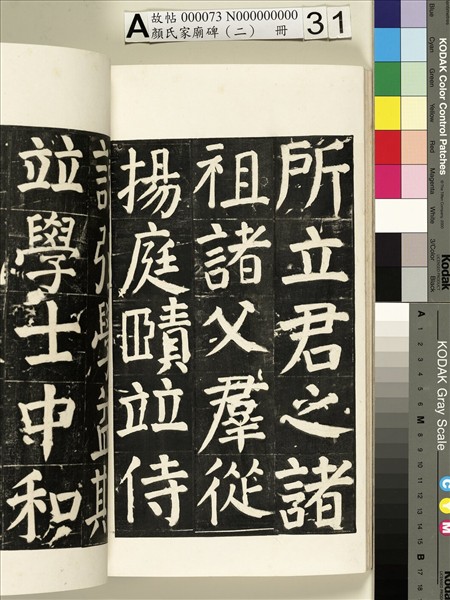 A
故帖 000073 N000000000
顏氏家廟碑(二) 冊
31
所立君之諸
祖諸父羣從
揚庭賾竝侍
學益
竝學士中和
KODAK Color Control Patches
Blue
Cyan
Green
Yellow
Red
Magenta
White
3/Color
Black
Kodak
KODAK Gray Scale
A 1 2 3 4 5 6 M 8 9 10 11 12 13 14 15 B 17 18
C Y M
Kodak